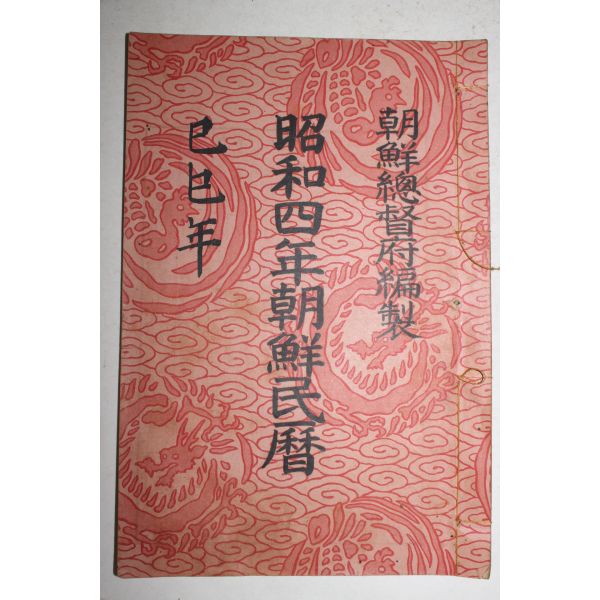 朝鮮總督府編製
昭和四年朝鮮民曆
己巳年